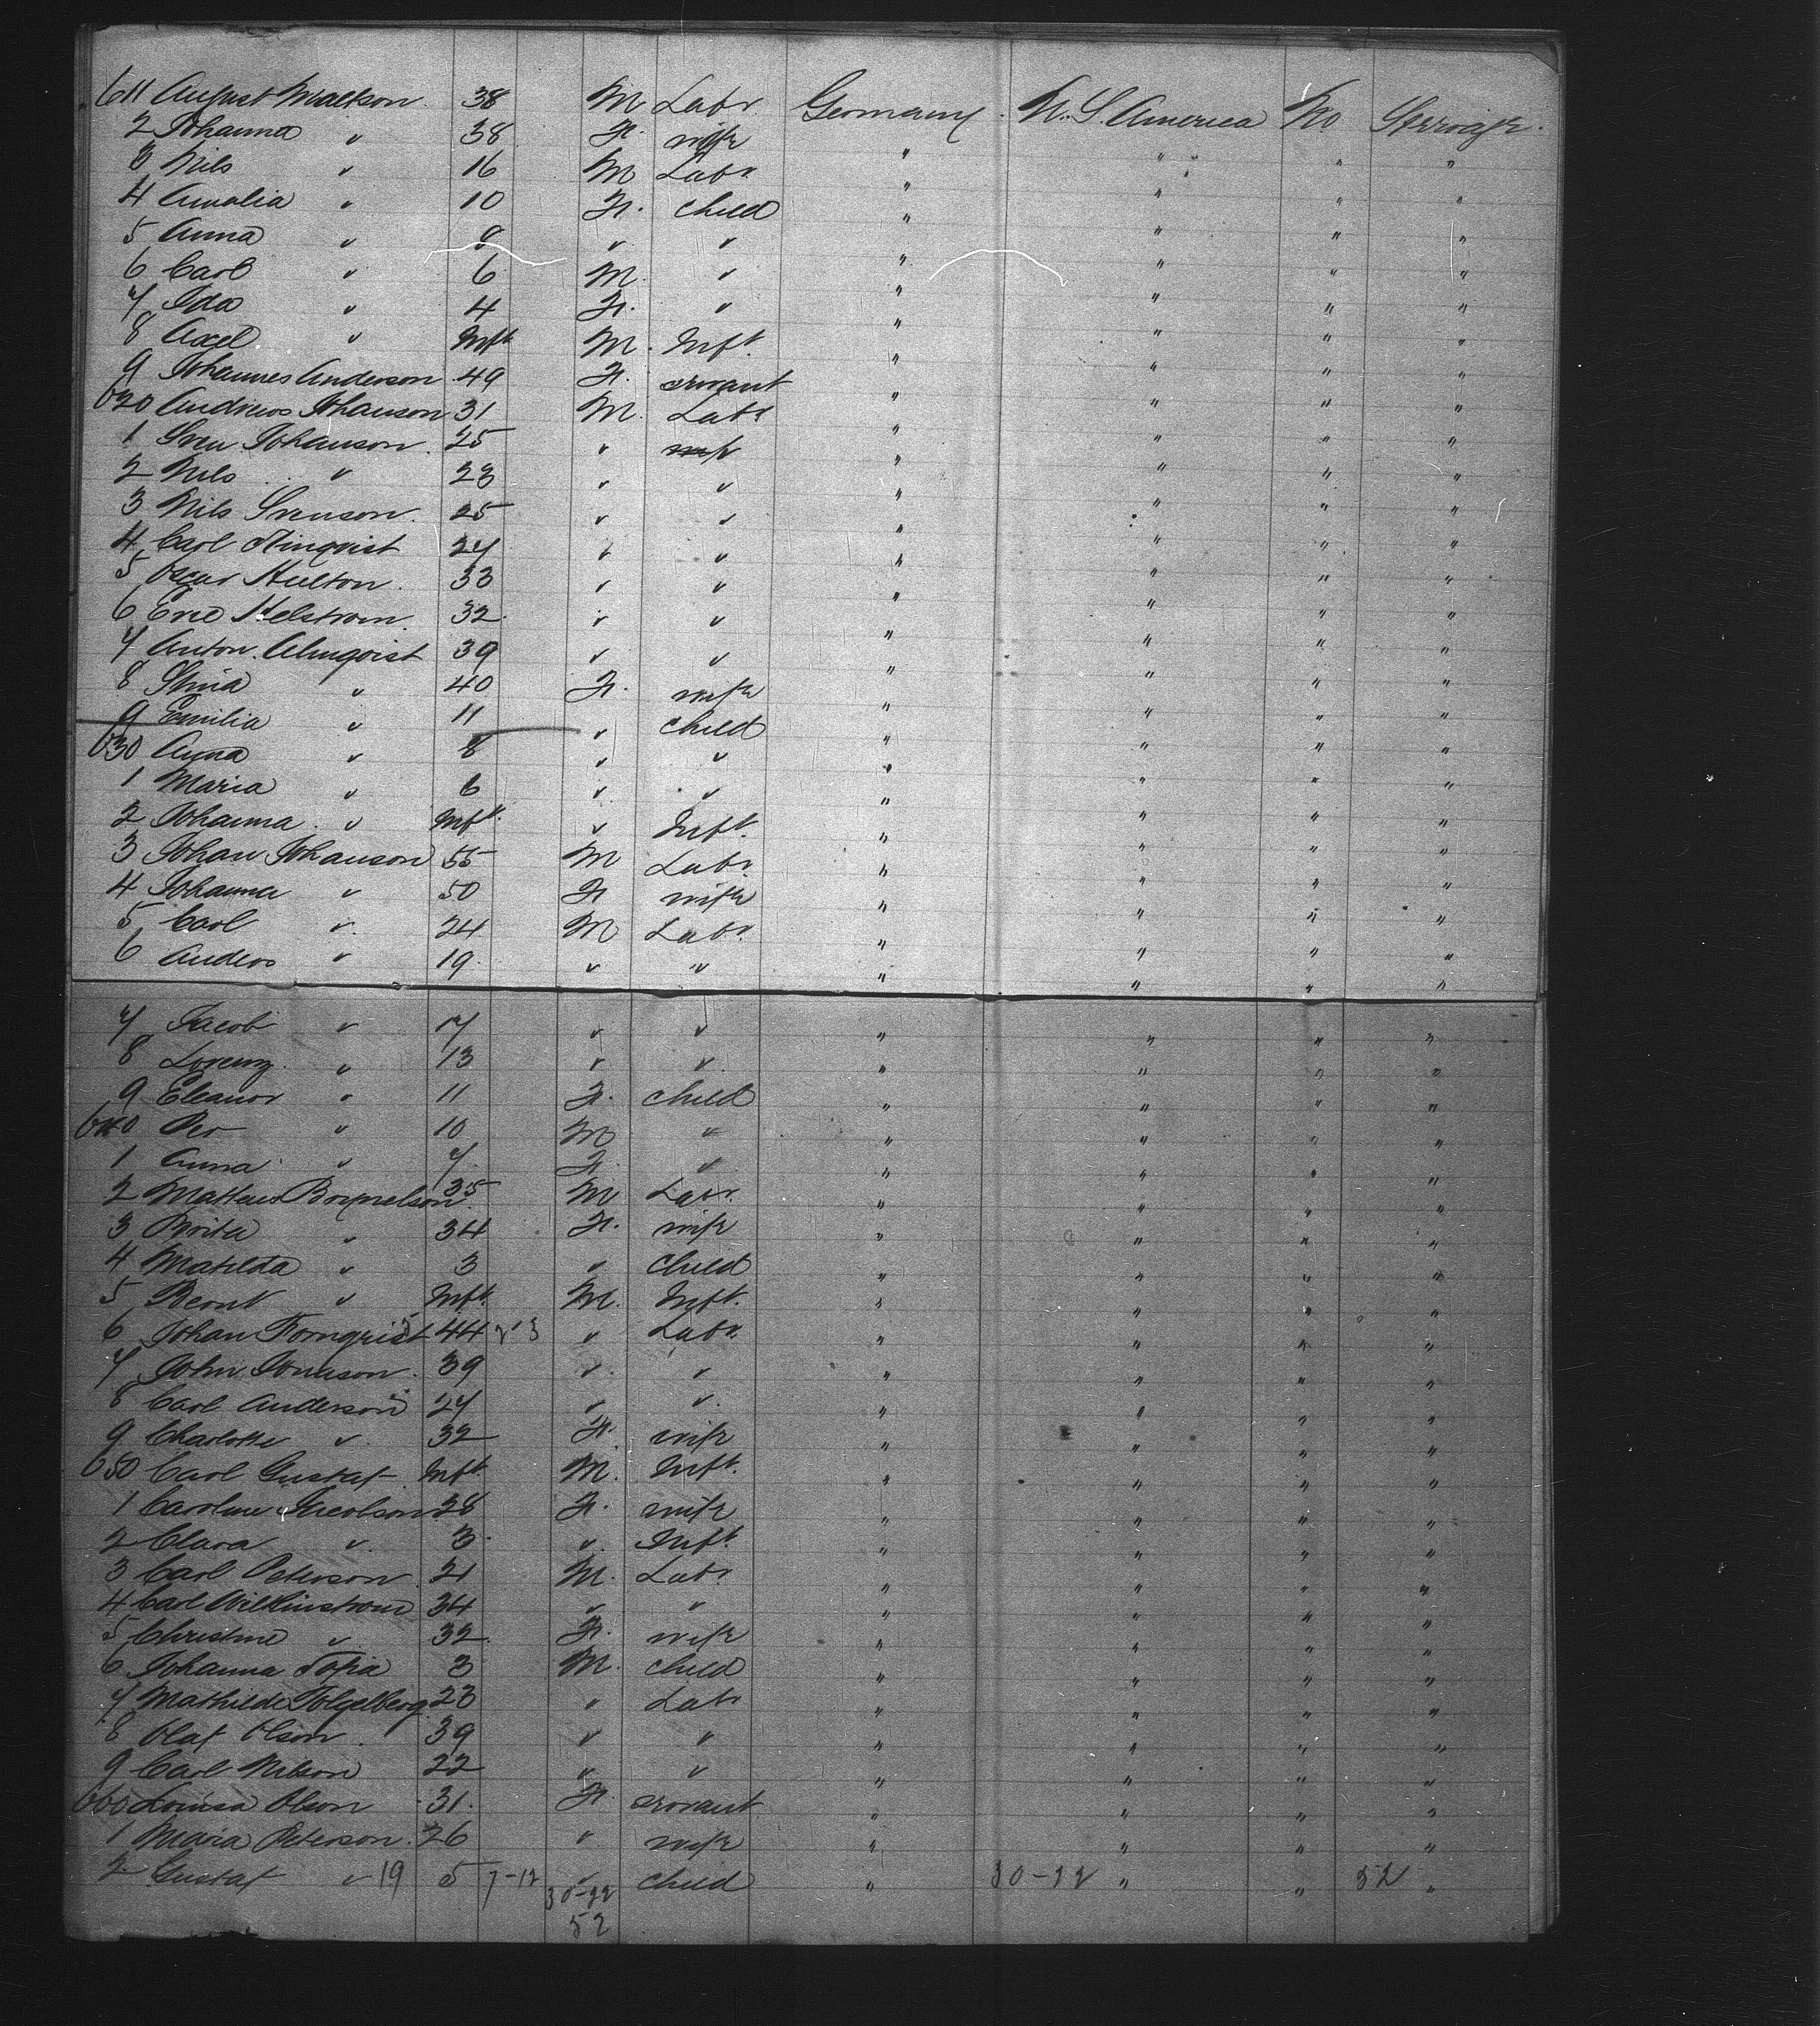 611 August Maltson 38 M Labr Germany U.S. America No Steerage
2 Johanna " 38 F. wife " " " "
3 Nils " 16 M Labr " " " "
4 Amalia " 10 F. child " " " "
5 Anna " 8 " " " " " "
6 Carl " 6 M " " " " "
7 Ida " 4 F. " " " " "
8 Axel " Inft M. Inft. " " " "
9 Johannes Anderson 49 F. servant " " " "
620 Andreas Johanson 31 M. Labr " " " "
1 Sven Johanson 25 " " " " "
2 Nils " 23 " " " " " "
3 Nils Svenson 25 " " " " " "
4 Carl 24 " " " " " "
5 Oscar Hulton 33 " " " " " "
6 Eric Helstrom 32 " " " " " "
7 Anton Almqvist 39 " " " " " "
8 Stina " 40 F. wife " " " "
9 Emilia " 11 " child " " " "
630 Anna " 8 " " " " " "
1 Maria " 6 " " " " " "
2 Johanna " Inft. " Inft. " " " "
3 Johan Johanson 55 M Labr " " " "
4 Johanna " 50 F wife " " " "
5 Carl " 24 M Labr. " " " "
6 Anders " 19 " " " " " "
7 Jacob " 17 " " " " " "
8 Lorenz " 13 " " " " " "
9 Eleanor " 11 F. child " " " "
640 Per " 10 M " " " " "
1 Anna " 7 F. " " " " "
2 35 M Labr. " " " "
3 Brita " 34 F. wife " " " "
4 Matilda " 3 " Child " " " "
5 Bernt " Inft. M. Inft. " " " "
6 Johan Tornqvist 44 " Labr. " " " "
7 John Jonason 39 " " " " " "
8 Carl Anderson 24 " " " " " "
9 Charlotte " 32 F. wife " " " "
650 Carl Gustaf Inft. M. Inft. " " " "
1 Caroline Jacobson 28 F. wife " " " "
2 Clara " 3 " Inft. " " " "
3 Carl Peterson 21 M. Labr. " " " "
4 Carl Wilkinstrom 34 " " " " " "
5 Christine " 32 F. wife " " " "
6 Johanna Sofia 3 M. child " " " "
7 Mathilde 23 " Labr " " " "
8 Olaf Olson 39 " " " " " "
9 Carl Nilson 22 " " " " " "
660 Louisa Olson 31 F. servant " " " "
1 Maria Peterson 26 " wife " " " "
2 Gustaf " 19 5 7-12 " child " 30-22 " " 52 "
30-22
52